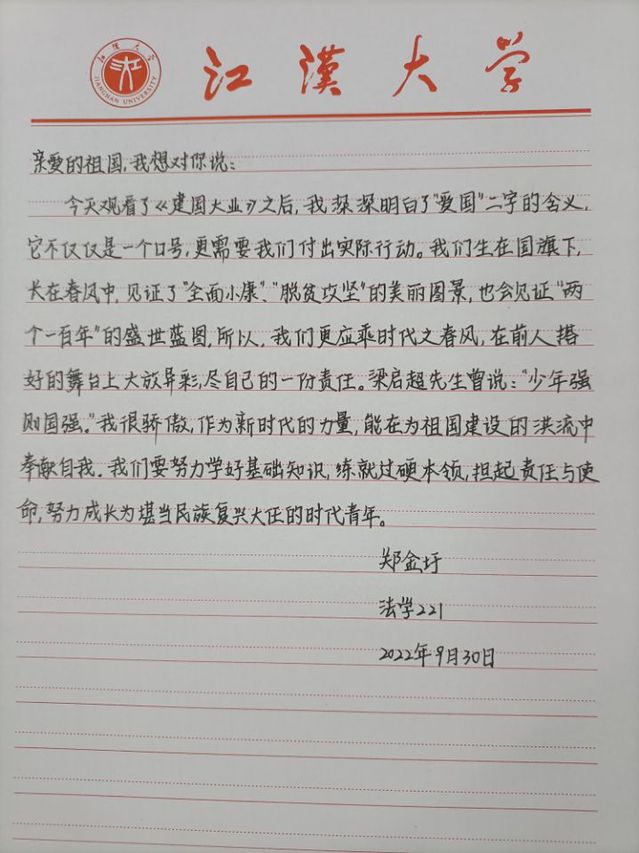 江汉大学
JIANGHAN UNIVERSITY
江漢大学
亲爱的祖国,我想对你说:
今天观看了《建国大业》之后,我深深明白了"爱国"二字的含义,
它不仅仅是一个口号,更需要我们付出实际行动。我们生在国旗下,
长在春风中,见证了"全面小康"、"脱贫攻坚"的美丽图景,也会见证"两
个一百年"的盛世蓝图,所以,我们更应乘时代之春风,在前人搭
好的舞台上大放异彩,尽自己的一份责任。梁启超先生曾说:"少年强
则国强。"我很骄傲,作为新时代的力量,能在为祖国建设的洪流中
奉献自我。我们要努力学好基础知识,练就过硬本领,担起责任与使
命,努力成长为堪当民族复兴大任的时代青年。
郑金圩
法学221
2022年9月30日